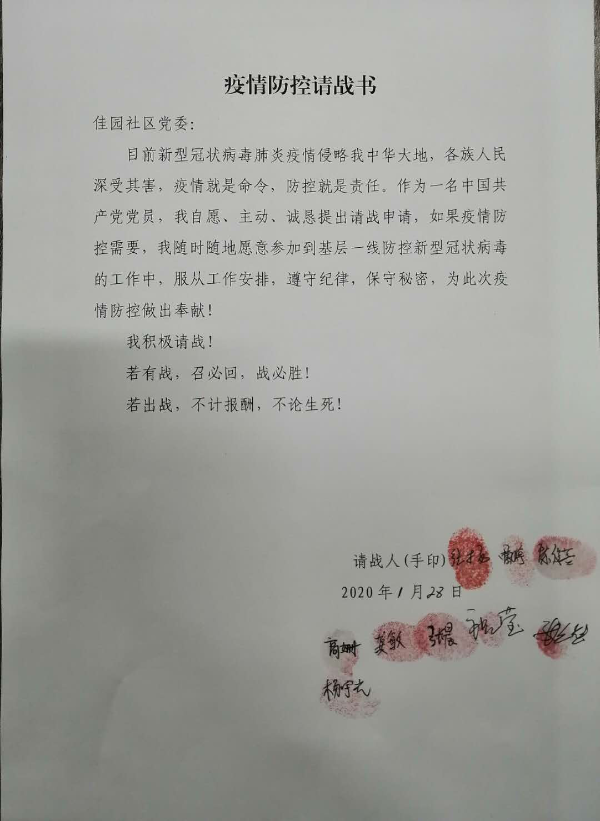 疫情防控请战书
佳园社区党委：
目前新型冠状病毒肺炎疫情侵略我中华大地，各族人民
深受其害，疫情就是命令，防控就是责任。作为一名中国共
产党党员，我自愿、主动、诚恳提出请战申请，如果疫情防
控需要，我随时随地愿意参加到基层一线防控新型冠状病毒
的工作中，服从工作安排，遵守纪律，保守秘密，为此次疫
情防控做出奉献！
我积极请战！
若有战，召必回，战必胜！
若出战，不计报酬，不论生死！
请战人（手印）
2020年1月28日
高姗 莫敏 张晨